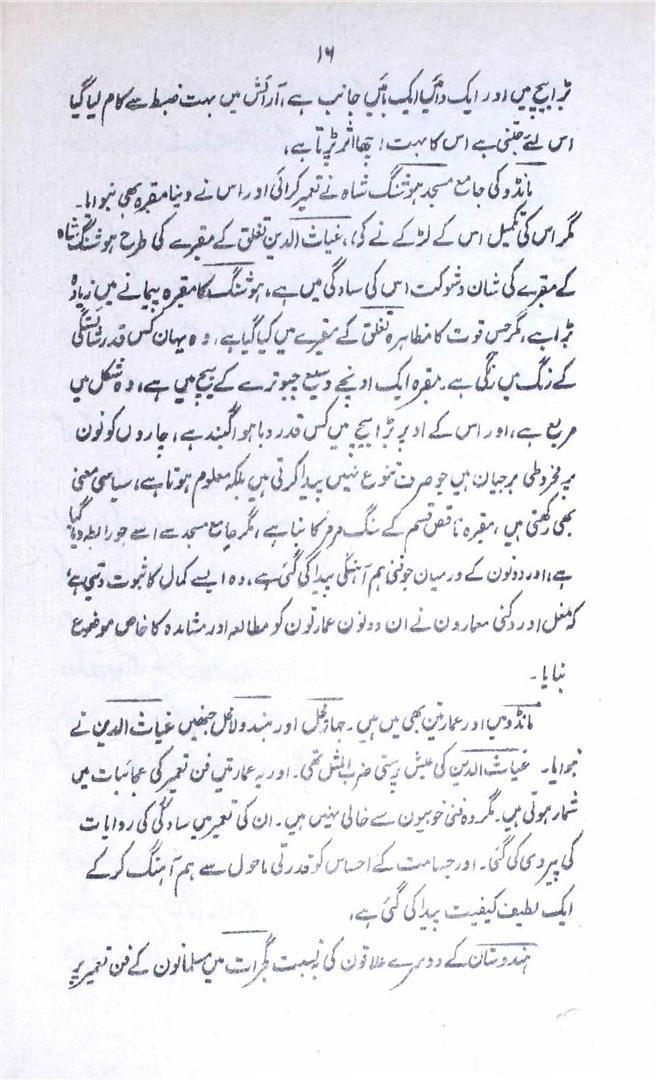 ۱۶
بڑا بیچ میں اور ایک دائیں ایک بائیں جانب ہے، آرائش میں بہت ضبط سے کام لیا گیا
اس لئے جتنی ہے اس کا بہت اچھا اثر پڑتا ہے،
مانڈو کی جامع مسجد ہوشنگ شاہ نے تعمیر کرائی اور اس نے اپنا مقبرہ بھی بنوایا۔
مگر اس کی تکمیل اس کے لڑکے نے کی، غیاث الدین تغلق کے مقبرے کی طرح ہوشنگ شاہ
کے مقبرے کی شان و شوکت اس کی سادگی میں ہے، ہوشنگ کا مقبرہ پیمانے میں زیادہ
بڑا ہے، مگر جس قوت کا مظاہرہ تغلق کے مقبرے میں کیا گیا ہے، وہ یہان کس قدر شائستگی
کے رنگ میں رنگی ہے۔ مقبرہ ایک اونچے وسیع چبوترے کے بیچ میں ہے، وہ شکل میں
مربع ہے، اور اس کے اوپر بڑا بیچ میں کس قدر دبا ہوا گنبد ہے، چاروں کونون
پر مخروطی برجیان ہیں جو صرف تنوع نہیں پیدا کرتی ہیں بلکہ معلوم ہوتا ہے، سیاسی معنی
بھی رکھتی ہیں، مقبرہ ناقص قسم کے سنگ مرمر کا بنا ہے، مگر جامع مسجد سے اسے جو رابطہ دیا گیا
ہے، اور دونون کے درمیان جو فنی ہم آہنگی پیدا کی گئی ہے، وہ ایسے کمال کا ثبوت دیتی ہے،
کہ مغل اور دکنی معمارون نے ان دونون عمارتون کو مطالعہ اور مشاہدہ کا خاص موضوع
بنایا۔
مانڈو میں اور عمارتین بھی ہیں ہیں۔ جہاز محل اور ہنڈولا محل جنھیں غیاث الدین نے
بنوایا۔ غیاث الدین کی عیش پرستی ضرب المثل تھی۔ اور یہ عمارتیں فن تعمیر کی عجائبات میں
شمار ہوتی ہیں۔ مگر وہ فنی خوبیون سے خالی نہیں ہیں۔ ان کی تعمیر میں سادگی کی روایات
کی پیروی کی گئی۔ اور جسامت کے احساس کو قدرتی ماحول سے ہم آہنگ کر کے
ایک لطیف کیفیت پیدا کی گئی ہے،
ہندوستان کے دوسرے علاقون کی بہ نسبت گجرات میں مسلمانون کے فن تعمیر پر